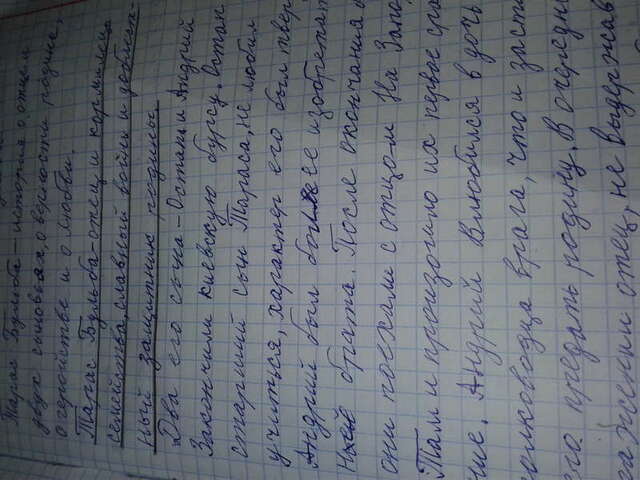 Тарас Бульба - история о отце и
двух сыновьях, о верности родине,
о геройстве и о любви.
Тарас Бульба - отец и кормилец
семейства, славный войн и доблест-
ный защитник родины.
Два его сына - Остап и Андрий
Закончили киевскую бурсу. Остап
старший сын Тараса, не любил
учиться, характер его был твер
Андрий был более изобретат
ней брата. После окончания б
они поехали с отцом На Запо
Там и произошло их первое сра
ние. Андрий Влюбился в дочь
олководца врага, что и заста
его предать родину. В очередн
ажении отец, не выдержав